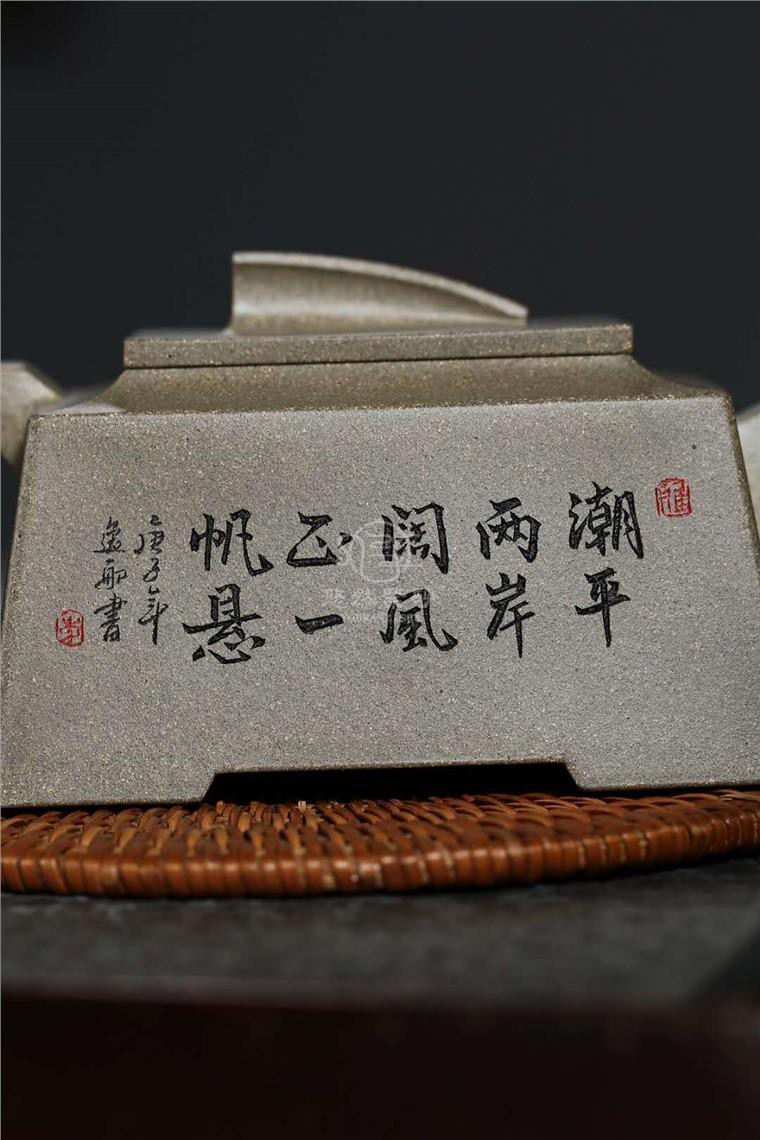 潮平
两岸
阔風
正一
帆悬
庚子年
逸舟書